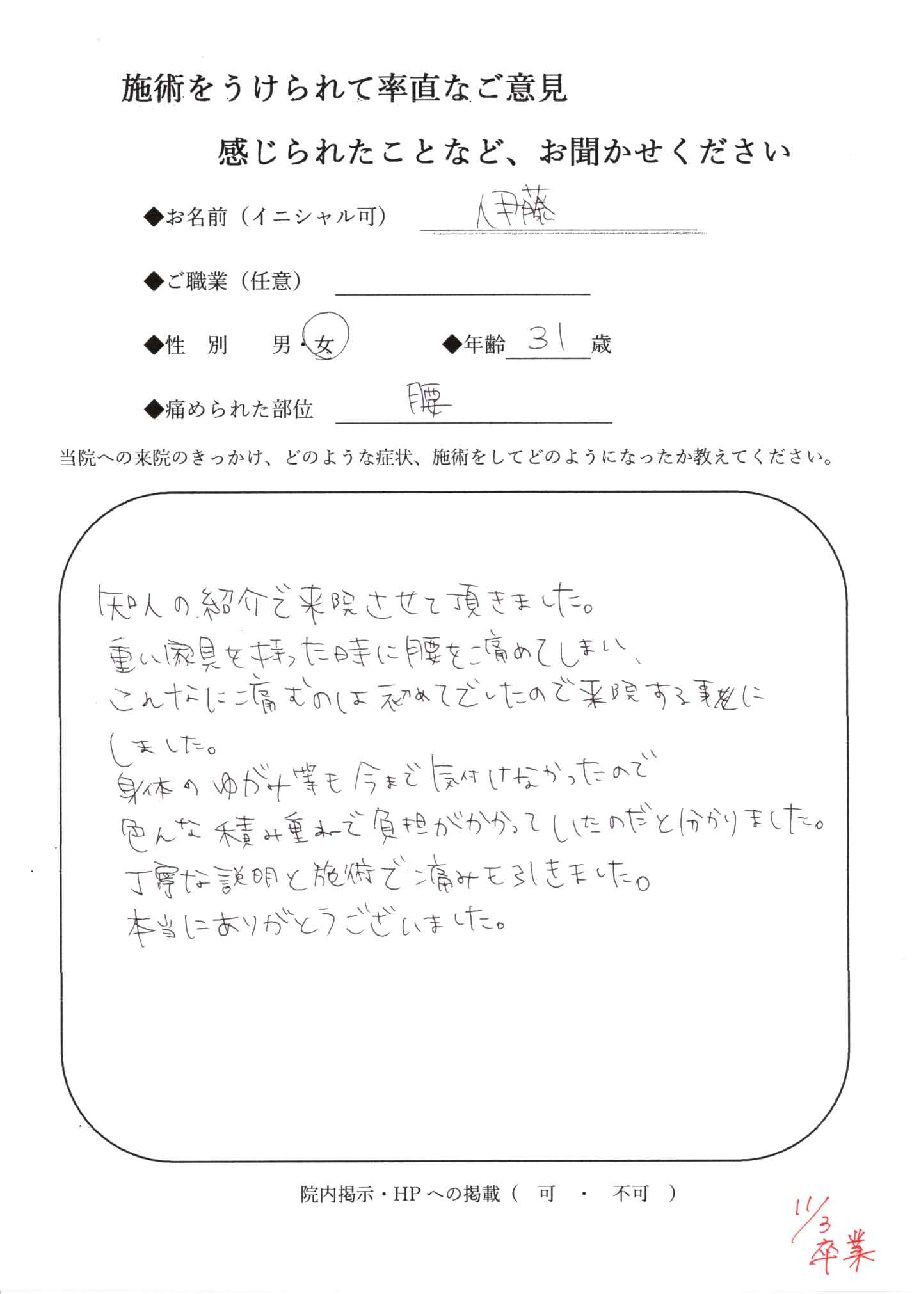 施術をうけられて率直なご意見
感じられたことなど、お聞かせください
◆お名前（イニシャル可） 伊藤
◆ご職業（任意）
◆性 別 男・女 ◆年齢 31 歳
◆痛められた部位 腰
当院への来院のきっかけ、どのような症状、施術をしてどのようになったか教えてください。
知人の紹介で来院させて頂きました。
重い家具を持った時に腰を痛めてしまい、
こんなに痛むのは初めてでしたので来院する事に
しました。
身体のゆがみ等も今まで気付けなかったので
色んな積み重ねで負担がかかっていたのだと分かりました。
丁寧な説明と施術で痛みも引きました。
本当にありがとうございました。
院内掲示・HPへの掲載（ 可 ・ 不可 ）
11/3
卒業